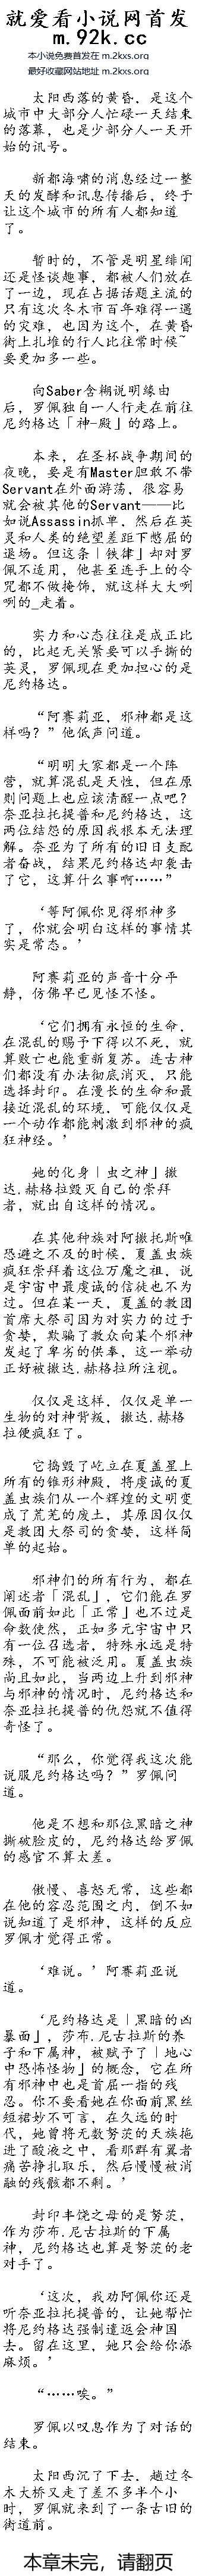 就爱看小说网首发
m.92k.cc
本小说免费首发在 m.2kxs.org
最好收藏网站地址 m.2kxs.org
太阳西落的黄昏，是这个
城市中大部分人忙碌一天结束
的落幕，也是少部分人一天开
始的讯号。
新都海啸的消息经过一整
天的发酵和讯息传播后，终于
让这个城市的所有人都知道
了。
暂时的，不管是明星绯闻
还是怪谈趣事，都被人们放在
了一边，现在占据话题主流的
只有这次冬木市百年难得一遇
的灾难，也因为这个，在黄昏
街上扎堆的行人比往常时候~
要更加多一些。
向Saber含糊说明缘由
后，罗佩独自一人行走在前往
尼约格达「神-殿」的路上。
本来，在圣杯战争期间的
夜晚，要是有Master胆敢不带
Servant在外面游荡，很容易
就会被其他的Servant——比
如说Assassin抓单，然后在英
灵和人类的绝望差距下憋屈的
退场。但这条「铁律」却对罗
佩不适用，他甚至连手上的令
咒都不做掩饰，就这样大大咧
咧的_走着。
实力和心态往往是成正比
的，比起无关紧要可以手撕的
英灵，罗佩现在更加担心的是
尼约格达。
“阿赛莉亚，邪神都是这
样吗？”他低声问道。
“明明大家都是一个阵
营，就算混乱是天性，但在原
则问题上也应该清醒一点吧？
奈亚拉托提普和尼约格达，这
两位结怨的原因我根本无法理
解。奈亚为了所有的旧日支配
者奋战，结果尼约格达却袭击
了它，这算什么事啊……”
‘等阿佩你见得邪神多
了，你就会明白这样的事情其
实是常态。’
阿赛莉亚的声音十分平
静，仿佛早已见怪不怪。
‘它们拥有永恒的生命，
在混乱的赐予下得以不死，就
算败亡也能重新复苏。连古神
们都没有办法彻底消灭，只能
选择封印。在漫长的生命和最
接近混乱的环境，可能仅仅是
一个动作都能刺激到邪神的疯
狂神经。’
她的化身「虫之神」撒
达.赫格拉毁灭自己的崇拜
者，就出自这样的情况。
在其他种族对阿撒托斯唯
恐避之不及的时候，夏盖虫族
疯狂崇拜着这位万魔之祖，说
是宇宙中最虔诚的信徒也不为
过。但在某一天，夏盖的教团
首席大祭司因为对实力的过于
贪婪，欺骗了教众向某个邪神
发起了卑劣的供奉，这一举动
正好被撒达.赫格拉所注视。
仅仅是这样，仅仅是单一
生物的对神背叛，撒达.赫格
拉便疯狂了。
它捣毁了屹立在夏盖星上
所有的锥形神殿，将虔诚的夏
盖虫族们从一个辉煌的文明变
成了荒芜的废土，其原因仅仅
是教团大祭司的贪婪，这样简
单的起始。
邪神们的所有行为，都在
阐述者「混乱」，它们能在罗
佩面前如此「正常」也不过是
命数使然，正如多元宇宙中只
有一位召选者，特殊永远是特
殊，不可能被泛用。夏盖虫族
尚且如此，当两边上升到邪神
与邪神的情况时，尼约格达和
奈亚拉托提普的仇怨就不值得
奇怪了。
“那么，你觉得我这次能
说服尼约格达吗？”罗佩问
道。
他是不想和那位黑暗之神
撕破脸皮的，尼约格达给罗佩
的感官不算太差。
傲慢、喜怒无常，这些都
在他的容忍范围之内，倒不如
说知道了是邪神，这样的反应
罗佩才觉得正常。
‘难说。’阿赛莉亚说
道。
‘尼约格达是「黑暗的凶
暴面」，莎布.尼古拉斯的养
子和下属神，被赋予了「地心
中恐怖怪物」的概念，它在所
有邪神中也是首屈一指的残
忍。你不要看她在你面前黑丝
短裙妙不可言，在久远的时
代，她曾将无数努茨的天族拖
进了酸液之中，看那群有翼者
痛苦挣扎取乐，然后慢慢被消
融的残骸都不剩。’
封印丰饶之母的是努茨，
作为莎布.尼古拉斯的下属
神，尼约格达也算是努茨的老
对手了。
‘这次，我劝阿佩你还是
听奈亚拉托提普的，让她帮忙
将尼约格达强制遣返会神国
去。留在这里，她只会给你添
麻烦。’
“……唉。”
罗佩以叹息作为了对话的
结束。
太阳西沉了下去，越过冬
木大桥又走了差不多半个小
时，罗佩就来到了一条古旧的
街道前。
本章未完，请翻页